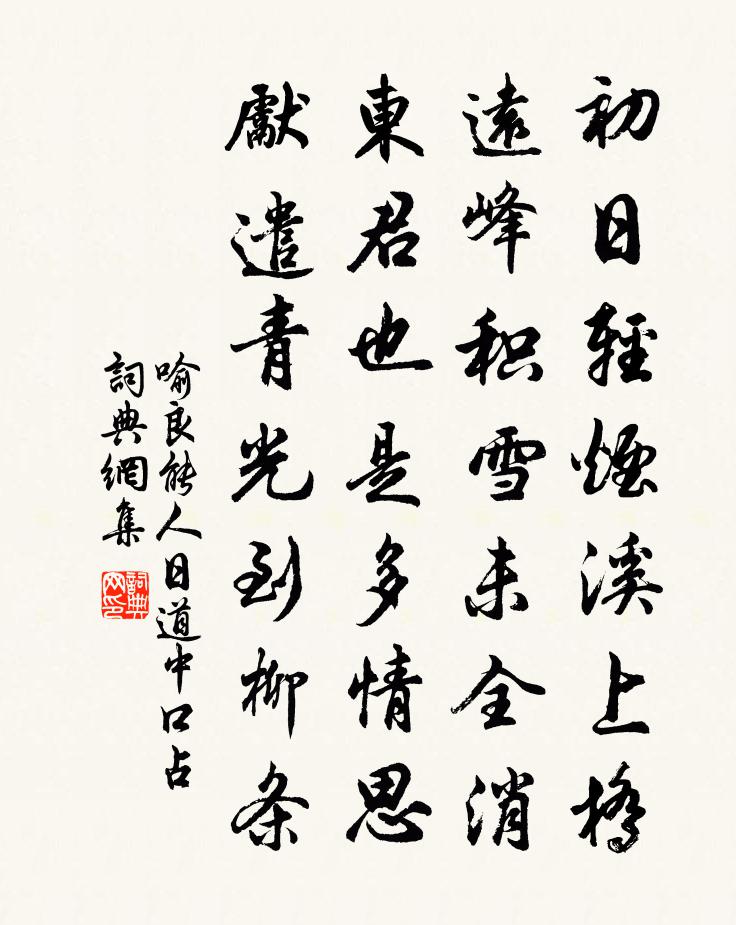 初日輕煙溪上橋
遠峰积雪未全消
東君也是多情思
獻遣青光到柳条
喻良能人日道中口占
詞典網集
詞典
网印